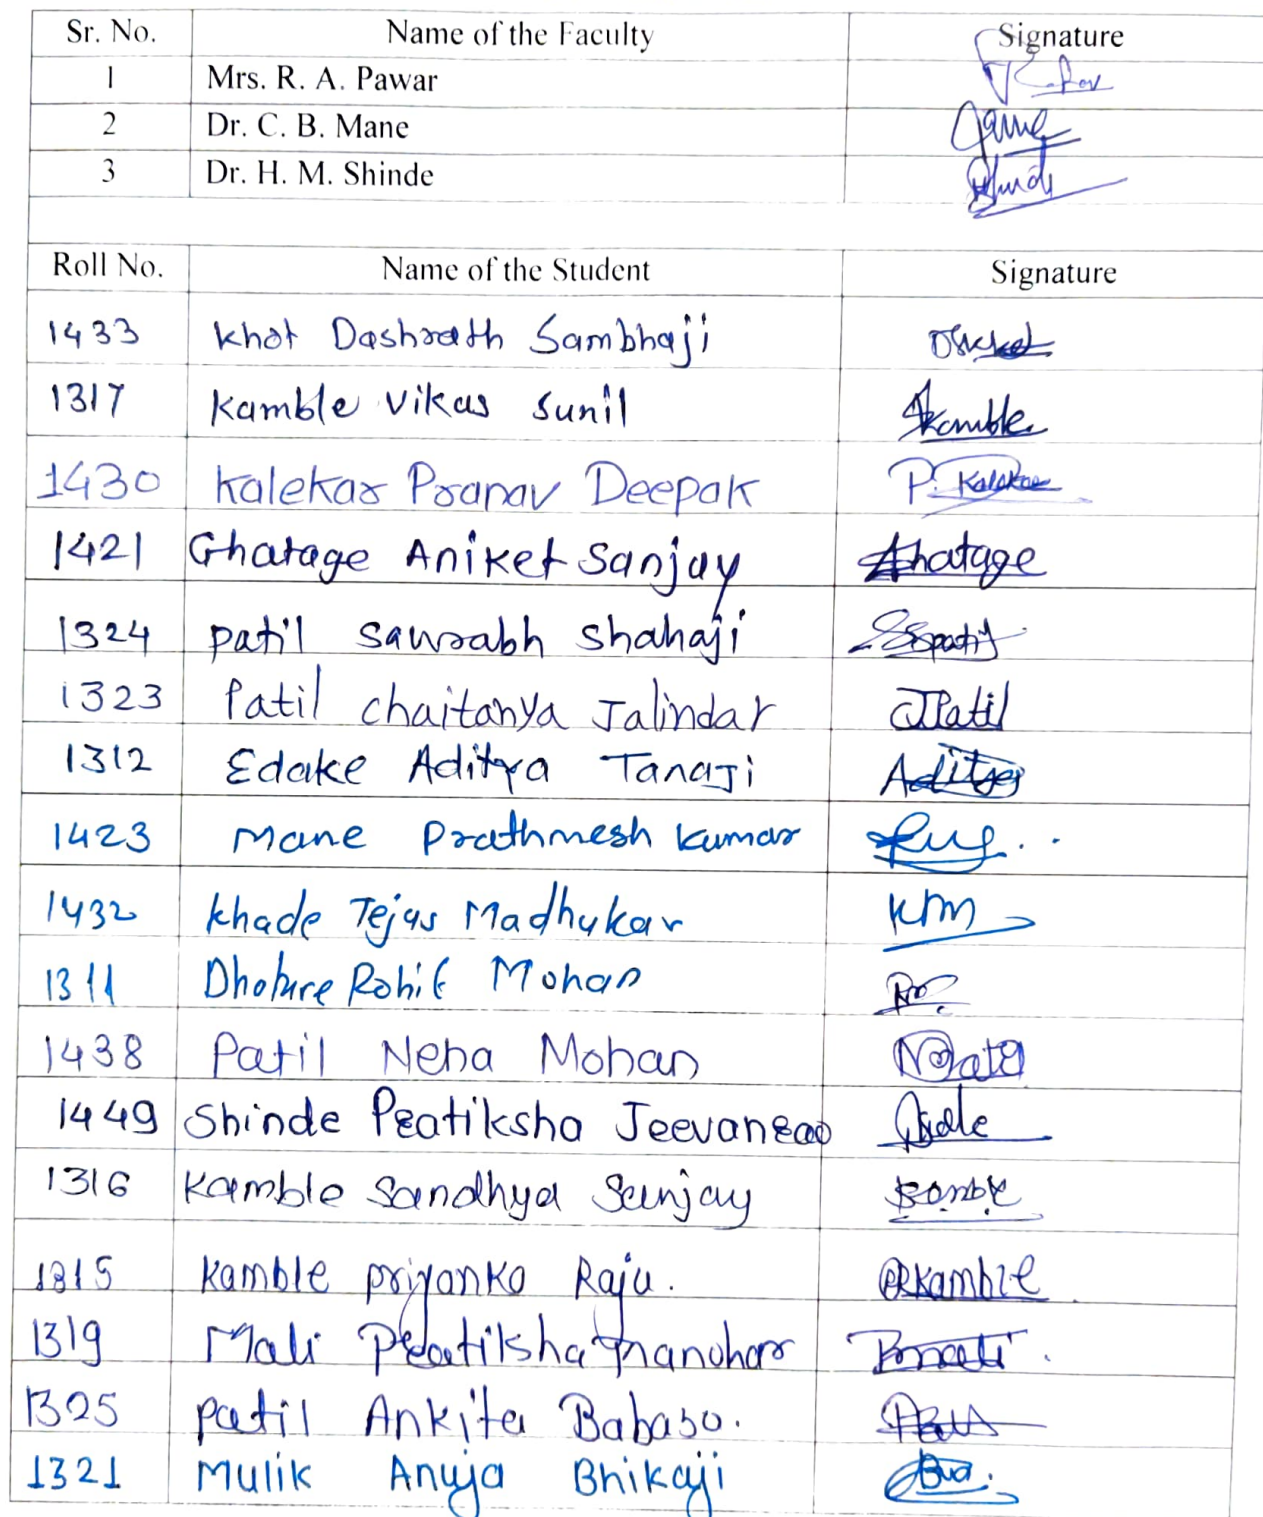 Sr. No. Name of the Faculty Signature
1 Mrs. R. A. Pawar
2 Dr. C. B. Mane
3 Dr. H. M. Shinde Shinde
Roll No. Name of the Student Signature
1433 Khot Dashrath Sambhaji
1317 Kamble Vikas Sunil Kamble
1430 Kalekar Pranav Deepak P. Kalekar
1421 Ghatage Aniket Sanjay Ghatage
1324 Patil Saurabh Shahaji SSpatil
1323 Patil Chaitanya Jalindar JPatil
1312 Edake Aditya Tanaji Aditya
1423 Mane Prathmesh Kumar
1432 Khade Tejas Madhukar KTM
1311 Dhokre Rohit Mohan
1438 Patil Neha Mohan
1449 Shinde Pratiksha Jeevanrao
1316 Kamble Sandhya Sanjay
1315 Kamble Priyanka Raju. PRKamble
1319 Mali Pratiksha Manohar
1325 Patil Ankita Babaso.
1321 Mulik Anuja Bhikaji